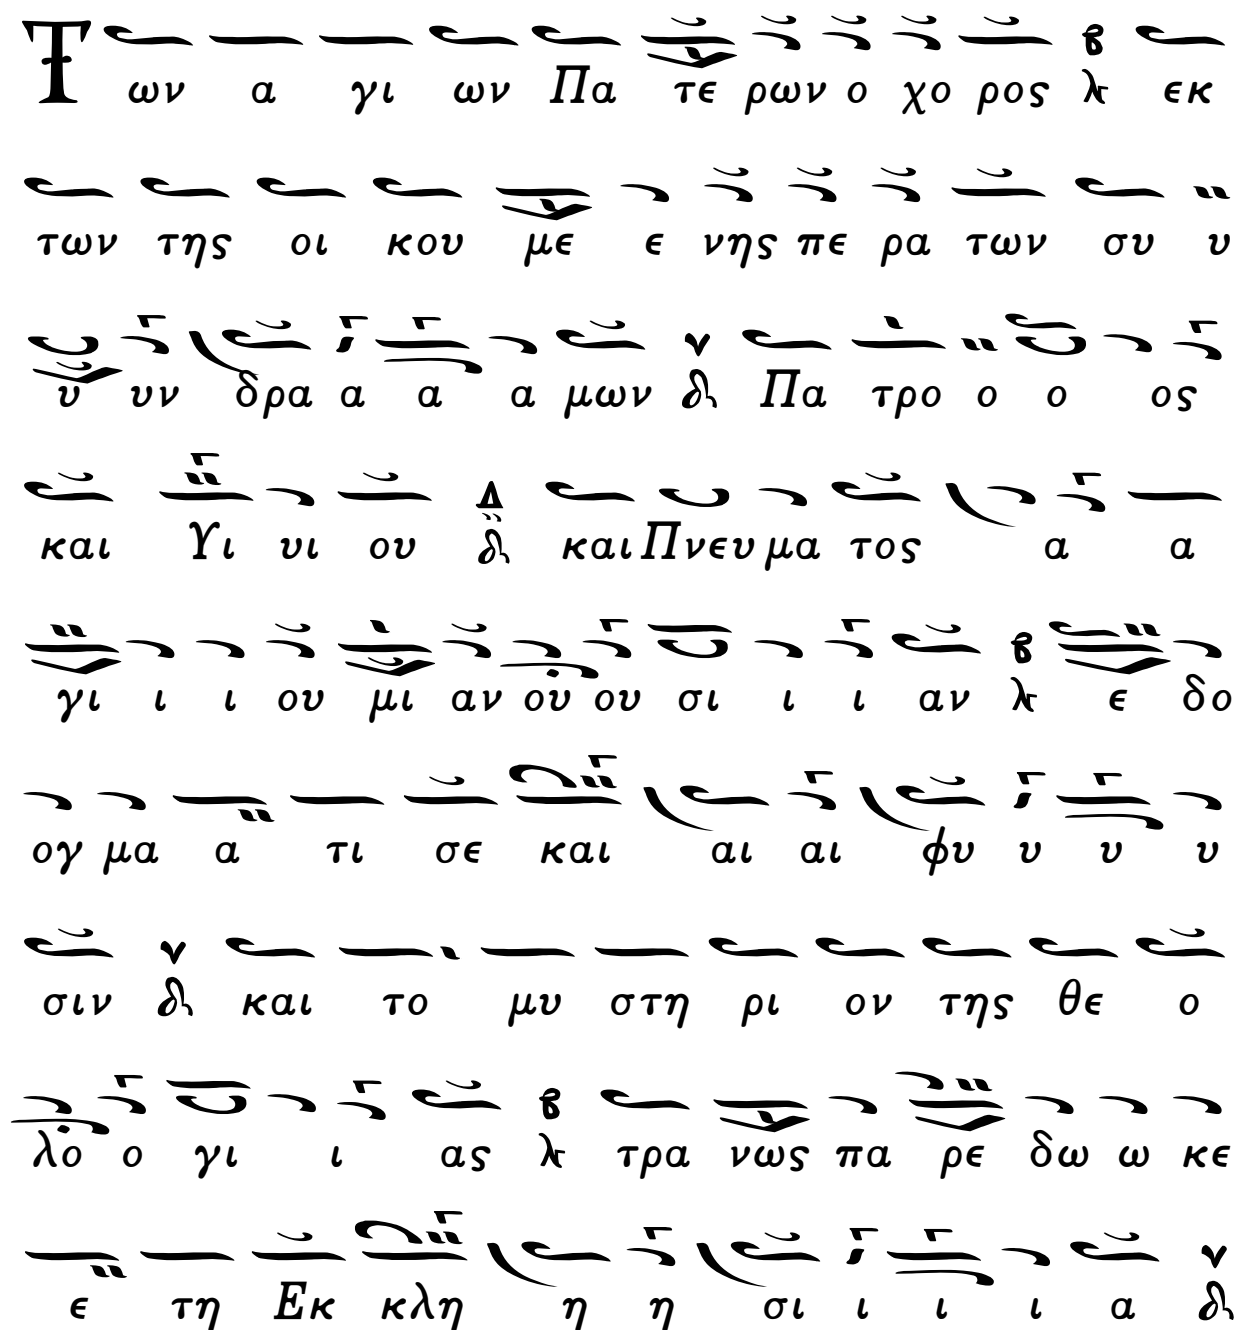 Των α γι ων Πα τε ρων ο χο ρος εκ
των της οι κου με ε νης πε ρα των συ υ
υ υν δρα α α α μων Πα τρο ο ο ος
και Υι υι ου Δ και Πνευ μα τος α α
γι ι ι ου μι αν ου ου σι ι ι αν ε δο
ογ μα α τι σε και αι αι φυ υ υ υ
σιν και το μυ στη ρι ον της θε ο
λο ο γι ι ας τρα νως πα ρε δω ω κε
ε τη Εκ κλη η η σι ι ι ι α